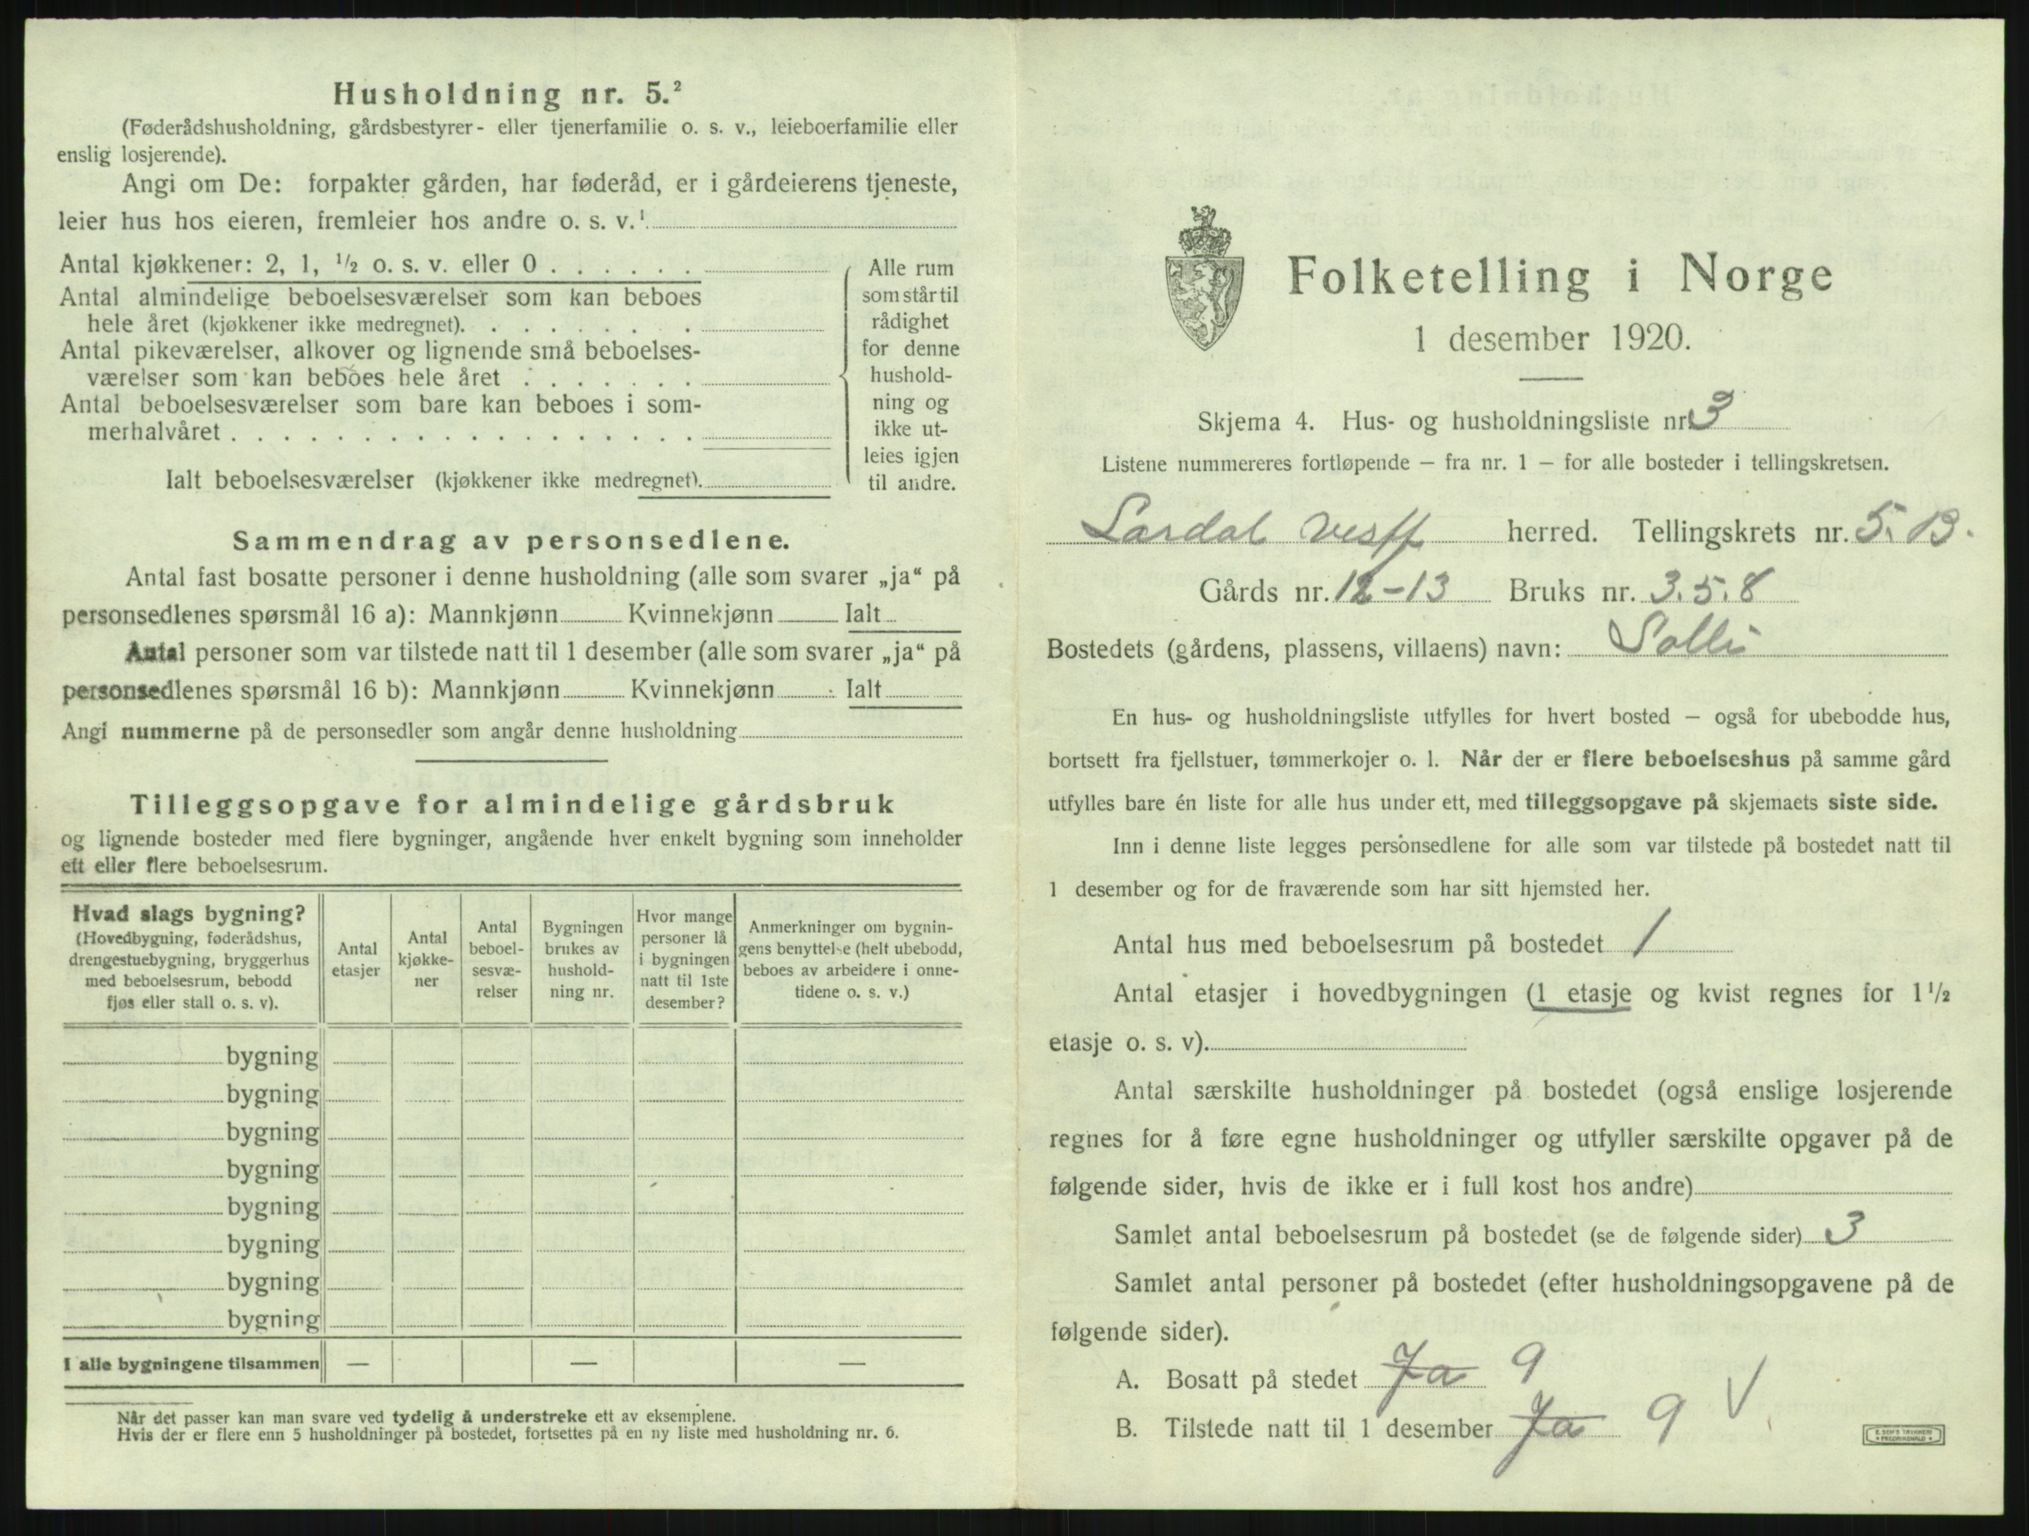 Husholdning nr. 5.²
(Føderådshusholdning, gårdsbestyrer- eller tjenerfamilie o. s. v., leieboerfamilie eller
enslig losjerende).
Angi om De: forpakter gården, har føderåd, er i gårdeierens tjeneste,
leier hus hos eieren, fremleier hos andre o. s. v.¹
Antal kjøkkener: 2, 1, ½ o. s. v. eller 0 . . . . . .
Antal almindelige beboelsesværelser som kan beboes
hele året (kjøkkener ikke medregnet). . . . . . . . .
Antal pikeværelser, alkover og lignende små beboelses-
værelser som kan beboes hele året . . . . . . .
Antal beboelsesværelser som bare kan beboes i som-
merhalvåret . . . . . . . . . . . . . . . . . .
Ialt beboelsesværelser (kjøkkener ikke medregnet).
Alle rum
som står til
rådighet
for denne
hushold-
ning og
ikke ut-
leies igjen
til andre.
Sammendrag av personsedlene.
Antal fast bosatte personer i denne husholdning (alle som svarer „ja“ på
personsedlenes spørsmål 16 a): Mannkjønn Kvinnekjønn Ialt
Antal personer som var tilstede natt til 1 desember (alle som svarer „ja“ på
personsedlenes spørsmål 16 b): Mannkjønn Kvinnekjønn Ialt
Angi nummerne på de personsedler som angår denne husholdning
Tilleggsopgave for almindelige gårdsbruk
og lignende bosteder med flere bygninger, angående hver enkelt bygning som inneholder
ett eller flere beboelsesrum.
Hvad slags bygning?
(Hovedbygning, føderådshus,
drengestuebygning, bryggerhus
med beboelsesrum, bebodd
fjøs eller stall o. s. v).
Antal
etasjer
Antal
kjøkke-
ner
Antal
beboel-
sesvæ-
relser
Bygningen
brukes av
hushold-
ning nr.
Hvor mange
personer lå
i bygningen
natt til 1ste
desember?
Anmerkninger om bygnin-
gens benyttelse (helt ubebodd,
beboes av arbeidere i onne-
tidene o. s. v.)
bygning
bygning
bygning
bygning
bygning
bygning
bygning
bygning
I alle bygningene tilsammen — — —
Når det passer kan man svare ved tydelig å understreke ett av eksemplene.
Hvis der er flere enn 5 husholdninger på bostedet, fortsettes på en ny liste med husholdning nr. 6.
Folketelling i Norge
1 desember 1920.
Skjema 4. Hus- og husholdningsliste nr. 3
Listene nummereres fortløpende — fra nr. 1 — for alle bosteder i tellingskretsen.
Lardal vestf herred. Tellingskrets nr. 5. B.
Gårds nr. 12-13 Bruks nr. 3.5.8
Bostedets (gårdens, plassens, villaens) navn: Solli
En hus- og husholdningsliste utfylles for hvert bosted — også for ubebodde hus,
bortsett fra fjellstuer, tømmerkojer o. l. Når der er flere beboelseshus på samme gård
utfylles bare én liste for alle hus under ett, med tilleggsopgave på skjemaets siste side.
Inn i denne liste legges personsedlene for alle som var tilstede på bostedet natt til
1 desember og for de fraværende som har sitt hjemsted her.
Antal hus med beboelsesrum på bostedet 1
Antal etasjer i hovedbygningen (1 etasje og kvist regnes for 1½
etasje o. s. v).
Antal særskilte husholdninger på bostedet (også enslige losjerende
regnes for å føre egne husholdninger og utfyller særskilte opgaver på de
følgende sider, hvis de ikke er i full kost hos andre)
Samlet antal beboelsesrum på bostedet (se de følgende sider) 3
Samlet antal personer på bostedet (efter husholdningsopgavene på de
følgende sider).
A. Bosatt på stedet Ja 9
B. Tilstede natt til 1 desember Ja 9